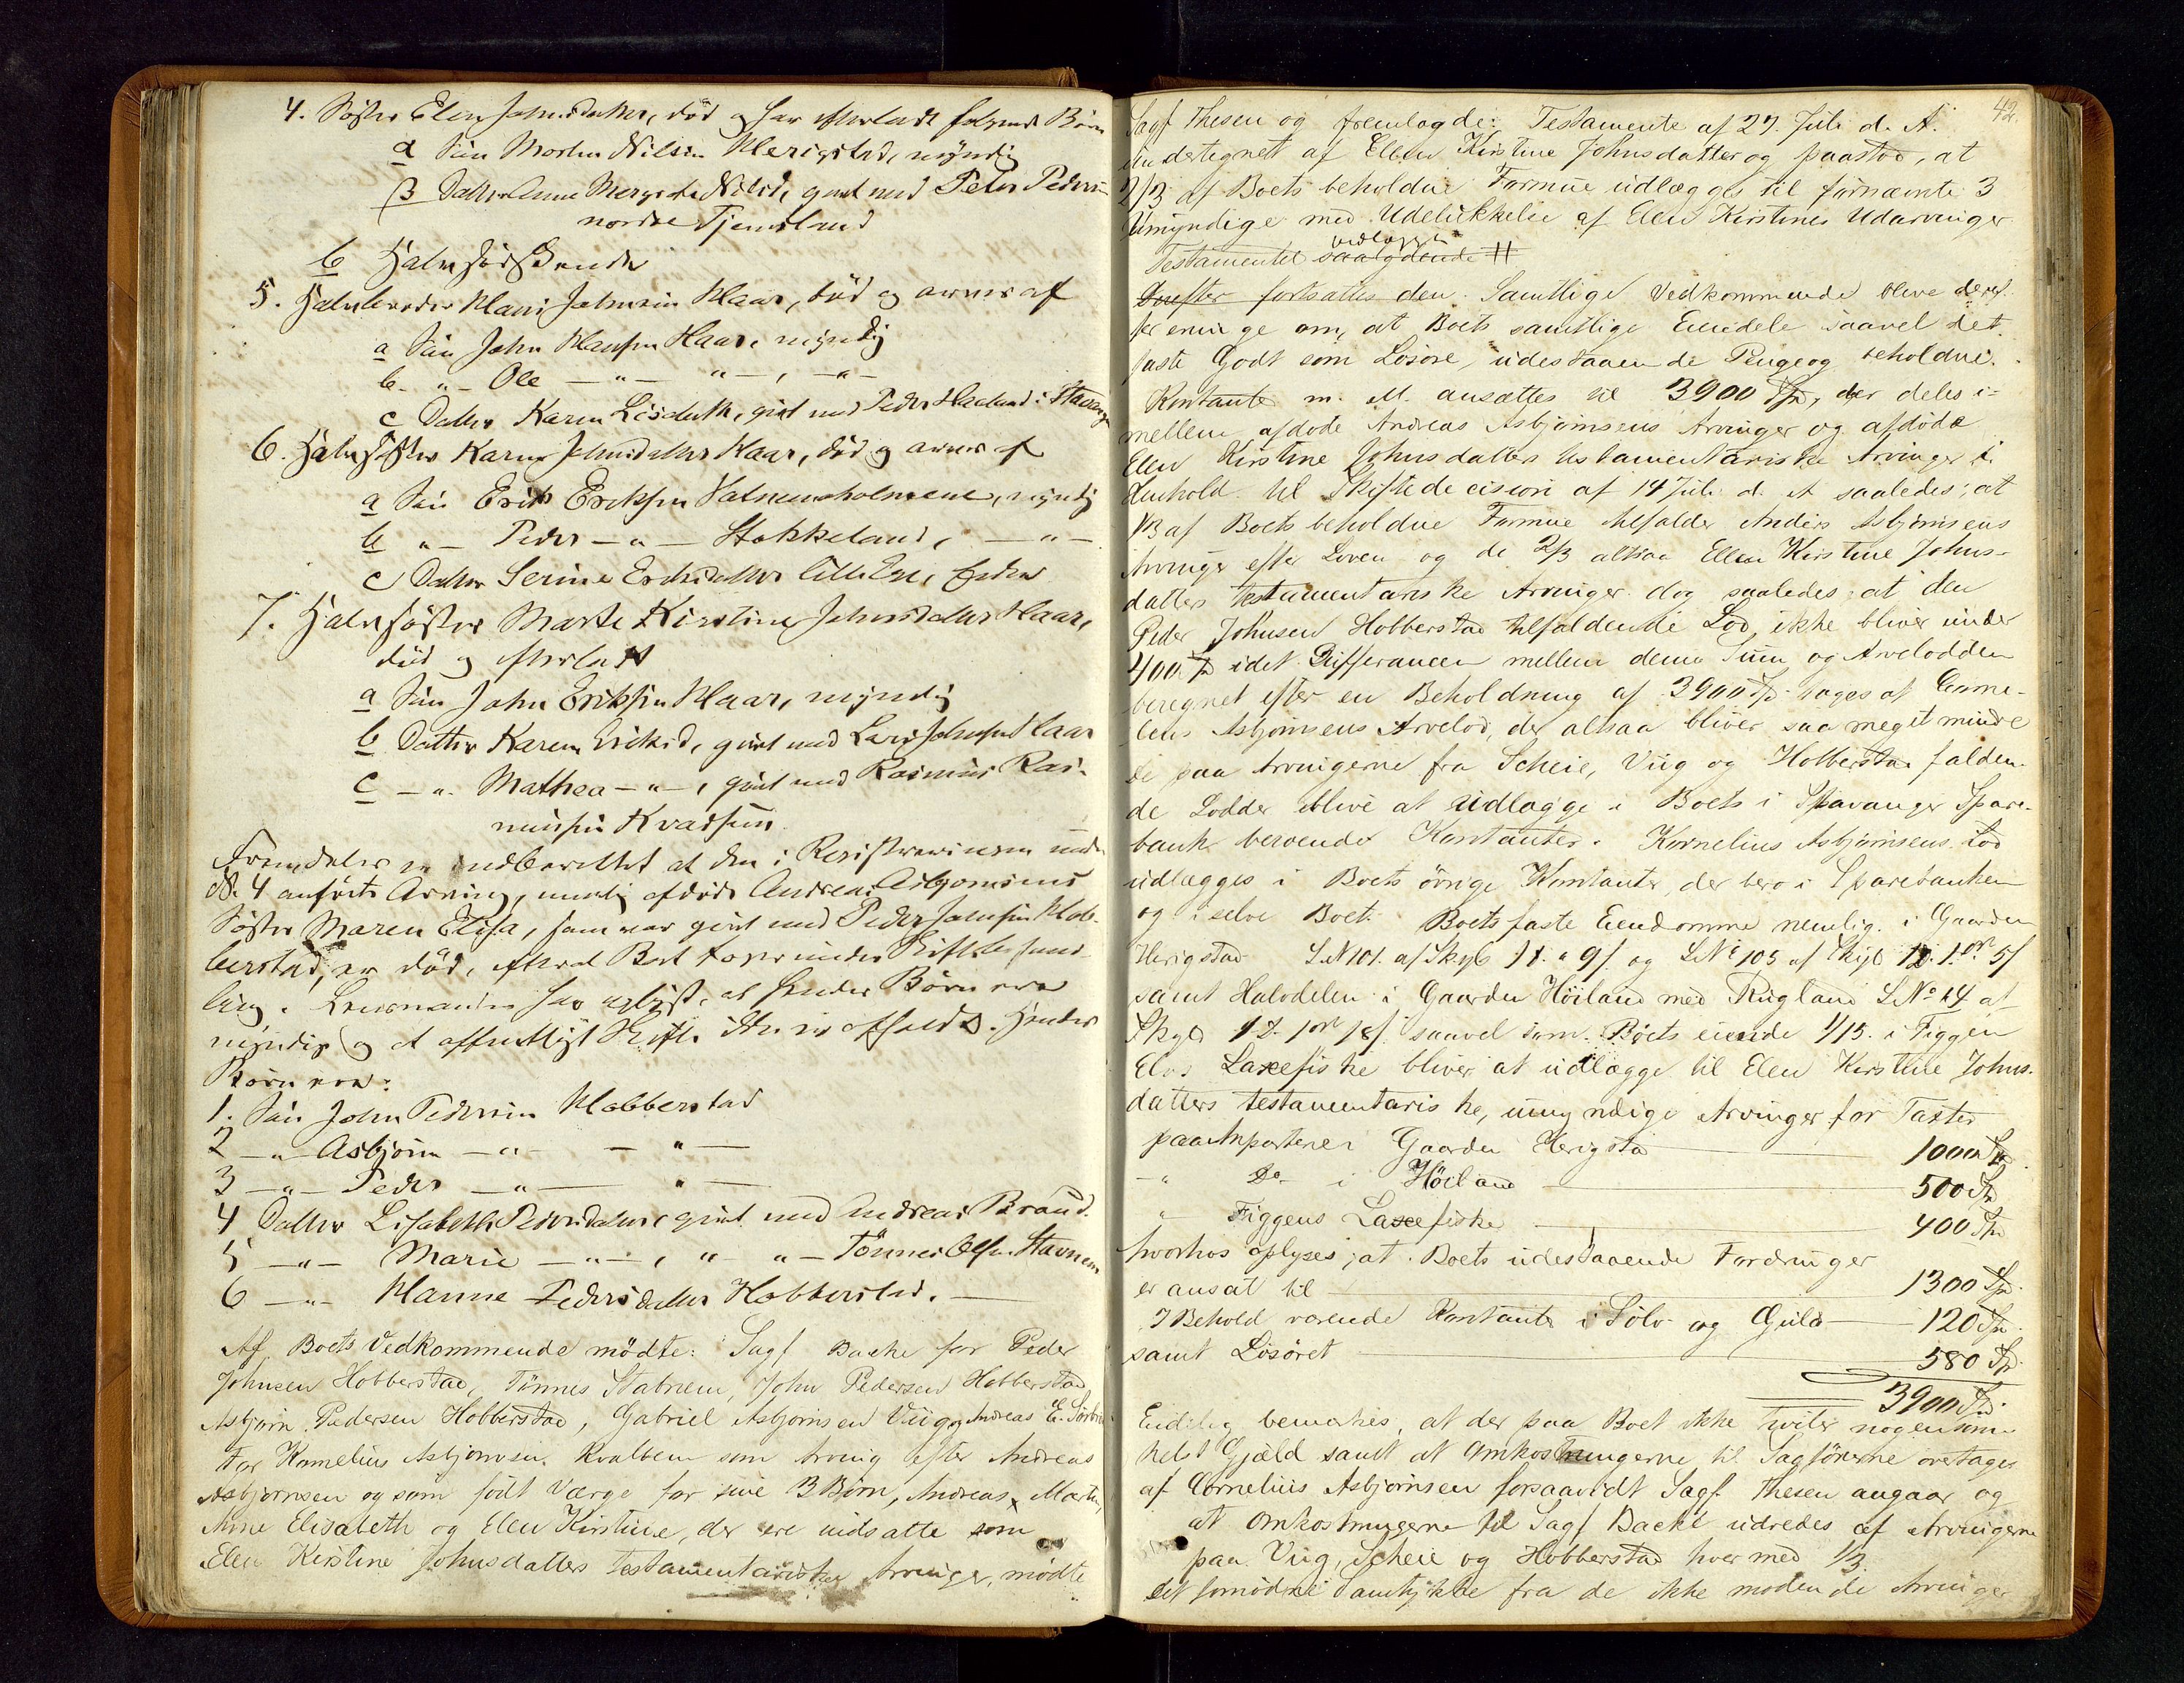 4. Søster Elen Johnsdatter, død og har efterladt følgende Børn
a Søn Morten Nilsen Herigstad, myndig
β Datter Anne Margrete Nilsd, givt med Peder Pedersen
nordre Tjemsland
b Halvsødskende
5. Halvbroder Hans Johnsen Haar, død og arves af
a Søn John Hansen Haar, myndig
b - " - Ole - " - " - , - " -
c Datter Karen Lisabeth, givt med Peder Haaland i Stavanger
6. Halvsøster Karen Johnsdatter Haar, død og arves af
a Søn Erik Eriksen Vatnemsholmene, myndig
b " - Peder - " - Stokkeland, - " -
c Datter Serine Eriksdatter
7. Halvsøster Marte Kirstine Johnsdatter Haar,
død og efterladt
a Søn John Eriksen Haar, myndig
b Datter Karen Eriksd, givt med Lars Johnsen Haar
c - " - Mathea - " - , givt med Rasmus Ras-
mussen Kvadsem
Fremdeles er indberettet at den i Registreringen under
No 4 anførte Arving, nemlig afdøde Andreas Asbjørnsens
Søster Maren Elisa, som var givt med Peder Johnsen Hob-
berstad, er død, efterat Boet toges under Skiftebehand-
ling. Lensmanden har oplyst, at hendes Børn ere
myndige og at offentligt Skifte ikke er afholdt. Hendes
Børn ere:
1. Søn John Pedersen Hobberstad
2 - " - Asbjørn - " - - " -
3 - " - Peder - " - " -
4 Datter Lisabeth Pedersdatter, givt med Andreas Braud.
5 - " - Marie - " - , " - " - Tønnes Olsen Stavnem
6 - " - Hanne Pedersdatter Hobberstad. -
Af Boets Vedkommende mødte: Sagf Backe for Peder
Johnsen Hobberstad, Tønnes Stabnem, John Pedersen Hobberstad
Asbjørn Pedersen Hobberstad, Gabriel Asbjørnsen Viig og Andreas E.
for Kornelius Asbjørnsen Kvalbein som Arving efter Andreas
Asbjørnsen og som født Værge for sine 3 Børn, Andreas Martin,
Anne Elisabeth og Elen Kirstine, der ere indsatte som
Elen Kirstine Johnsdatters testamentariske Arvinger, mødte
42.
Sagf Thesen og fremlagde: Testamente af 27. Juli d. A.
undertegnet af Ellen Kirstine Johnsdatter og paastod, at
2/3 af Boets beholdne Formue udlægges til førnævnte 3
Umyndige med Udelukkelse af Elen Kirstines Udarvinger
vedlægges
Testamentet saalydende #
Derefter fortsattes den. Samtlige Vedkommende bleve deref-
ter enige om, at Boets samtlige Eiendele saavel det
faste Gods som Løsøre, udestaaende Penge og beholdne
Kontanter m. M. ansættes til 3900 Spd, der deles i-
mellem afdøde Andreas Asbjørnsens Arvinger og afdøde
Elen Kirstine Johnsdatters testamentariske Arvinger i
Henhold til Skiftedecision af 14 Juli d. A saaledes; at
1/3 af Boets beholdne Formue tilfalder Anders Asbjørnsens
Arvinger efter Loven og de 2/3 altsaa Ellen Kirstine Johns-
datters testamentariske Arvinger dog saaledes at den
Peder Johnsen Hobberstad tilfaldende Lod, ikke bliver under
400 Spd idet Differancen mellem denne Sum og Arvelodden
beregnet efter en Beholdning af 3900 Spd tages af Corne-
lius Asbjørnsens Arvelod, der altsaa bliver saa meget mindre
de paa Arvingerne fra Scheie, Viig og Hobberstad falden-
de Lodder blive at udlægge i Boets i Stavanger Spare-
bank beroende Kontanter. Kornelius Asbjørnsens Lod
udlægges i Boets øvrige Kontanter, der bero i Sparebanken
og i selve Boet. Boets faste Eiendomme nemlig i Gaarden
Herigstad L.N 101. af Skyld 9 f. og LNo 105 af Skyld 1 ort 5 f
samt Halvdelen i Gaarden Høiland med Rugland L No 14 af
Skyld 1 D. 1 ort 18 f. saavel som Boets eiende 1/15. i Figgen
Elvs Laxefiske bliver at udlægge til Elen Kirstine Johns-
datters testamentariske, umyndige Arvinger for Taxter
paa Anparten i Gaarden Herigstad - 1000 Spd
- " Do i Høiland - 500 Spd
" Figgens Laxefiske - 400 Spd
hvorhos oplyses, at Boets udestaaende Fordringer
er ansat til - 1300 Spd.
I Behold værende Kontanter i Sølv og Guld - 120 Spd.
samt Løsøret - 580 Spd
3900 Spd.
Endelig bemærkes, at der paa Boet ikke hviler nogensom-
helst Gjæld samt at Omkostningerne til Sagførerne overtages
af Cornelius Asbjørnsen forsaavidt Sagf Thesen angaar og
at Omkostningerne til Sagf Backe udredes af Arvingerne
paa Viig, Scheie og Hobberstad hver med 1/3.
det fornødne Samtykke fra de ikke mødende Arvinger